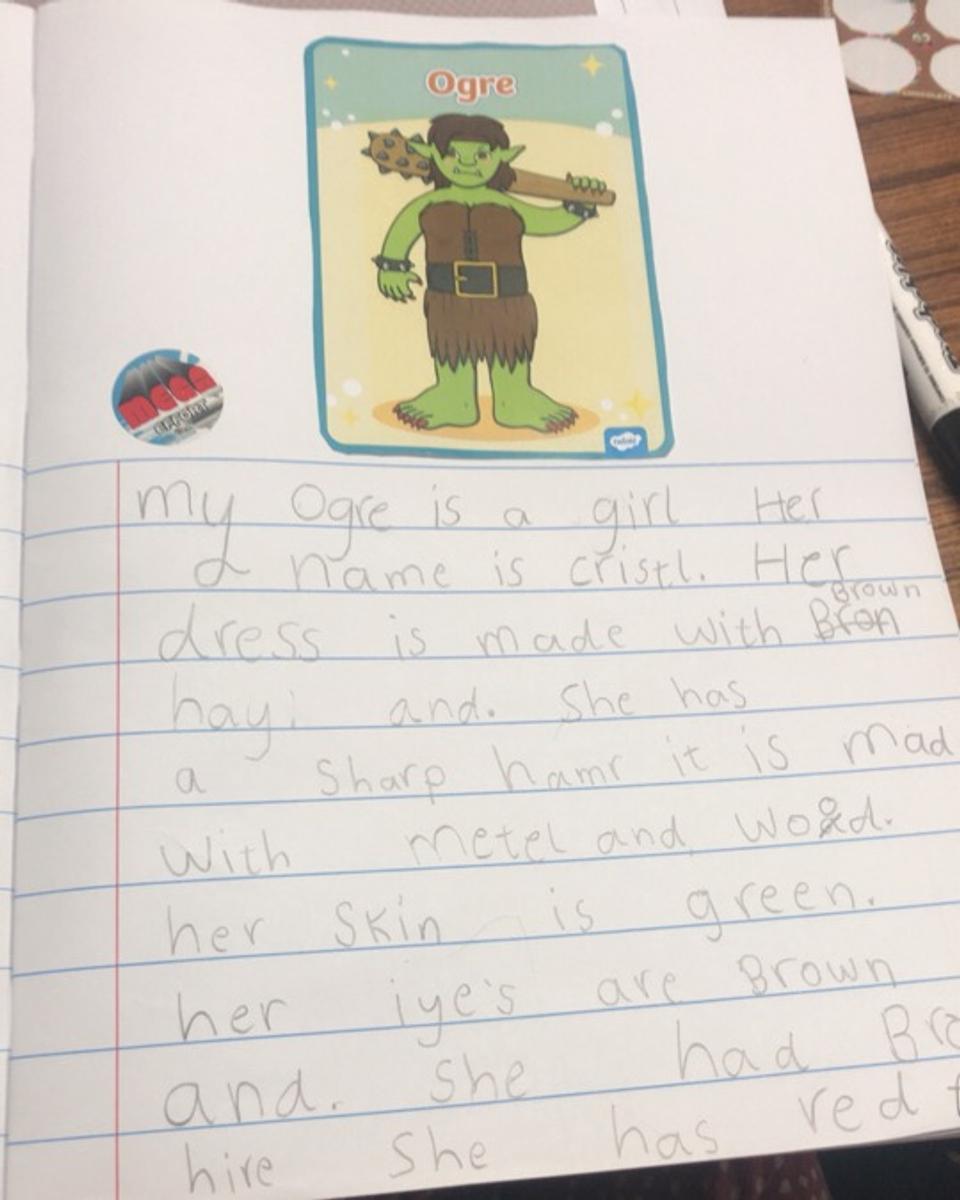 Ogre
MEGA
EFFORT
twinkl
My Ogre is a girl Her
d name is cristl. Her
Brown
dress is made with Bron
hay. and. She has
a Sharp hamr it is mad
with metel and wood.
her Skin is green.
her iye's are Brown
and. She had Bro
hire She has red t